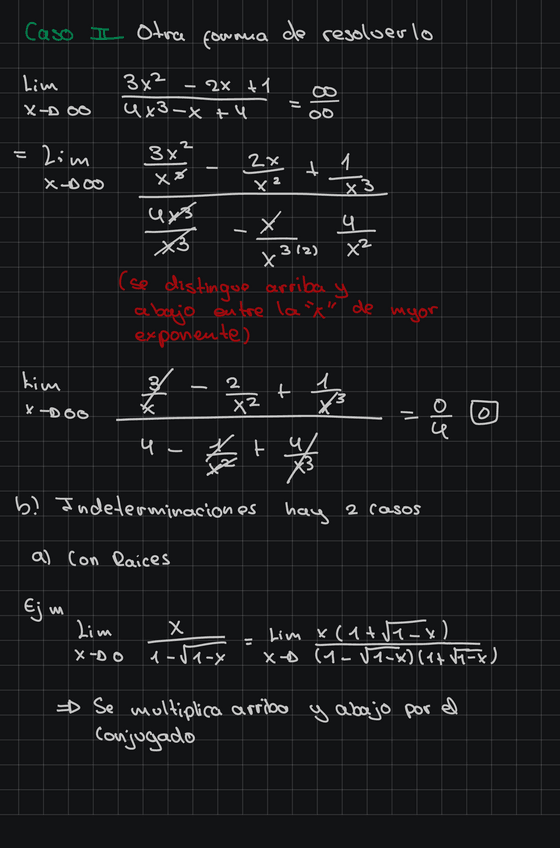 Caso II Otra forma de resolverlo
Lim x→∞ (3x² - 2x + 1)/(4x³ - x + 4) = ∞/∞
= Lim x→∞ (3x²/x³ - 2x/x² + 1/x³)/(4x³/x³ - x/x³⁽²⁾ 4/x²)
(se distingue arriba y
abajo entre la "x" de mayor
exponente)
Lim x→∞ (3/x - 2/x² + 1/x³)/(4 - 1/x² + 4/x³) = 0/4 0
b) Indeterminaciones hay 2 casos
a) Con Raices
Ejm
Lim x→0 x/(1-√1-x) = Lim x→ x(1+√1-x)/(1-√1-x)(1+√1-x)
⇒ Se multiplica arriba y abajo por el
Conjugado